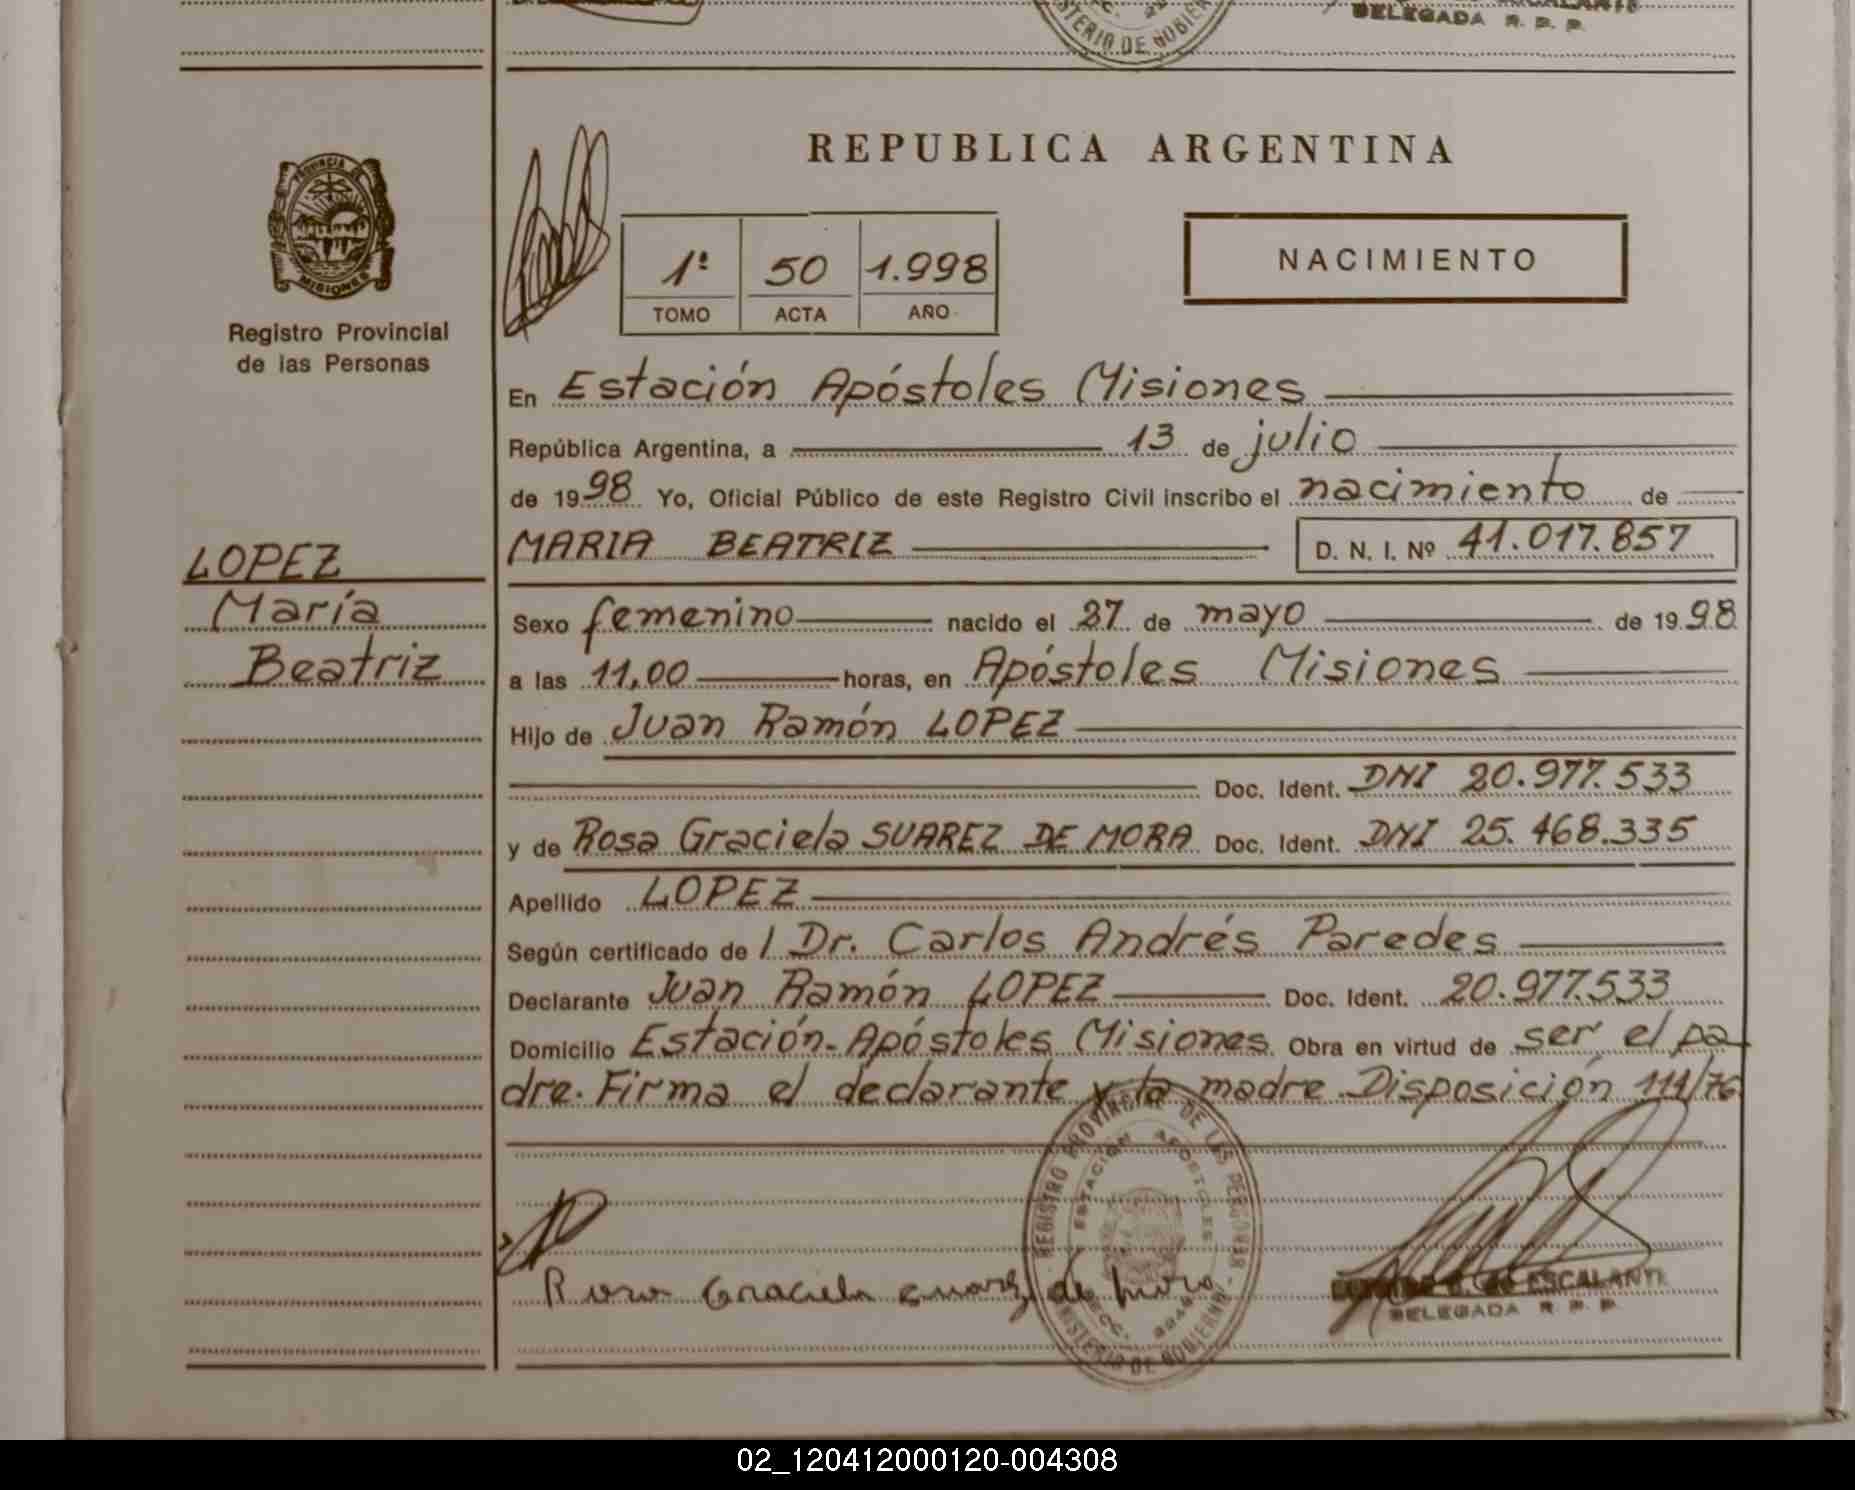 MINISTERIO DE GOBIERNO
DELEGADA R. P. P.
REPUBLICA ARGENTINA
PROVINCIA DE
MISIONES
1º 50 1.998
TOMO ACTA AÑO
NACIMIENTO
Registro Provincial
de las Personas
En Estación Apóstoles Misiones
República Argentina, a 13 de julio
de 1998 Yo, Oficial Público de este Registro Civil inscribo el nacimiento de
MARIA BEATRIZ D. N. I. Nº 41.017.857
LOPEZ
María
Beatriz
Sexo femenino nacido el 27 de mayo de 1998
a las 11,00 horas, en Apóstoles Misiones
Hijo de Juan Ramón LOPEZ
Doc. Ident. DNI 20.977.533
y de Rosa Graciela SUAREZ DE MORA Doc. Ident. DNI 25.468.335
Apellido LOPEZ
Según certificado de / Dr. Carlos Andrés Paredes
Declarante Juan Ramón LOPEZ Doc. Ident. 20.977.533
Domicilio Estación-Apóstoles Misiones Obra en virtud de ser el pa
dre. Firma el declarante y la madre Disposición 111/76
REGISTRO PROVINCIAL DE LAS PERSONAS
ESTACION APOSTOLES
MINISTERIO DE GOBIERNO
Rosa Graciela Suarez de Mora
ESCALANTE
DELEGADA R. P. P.
02_120412000120-004308